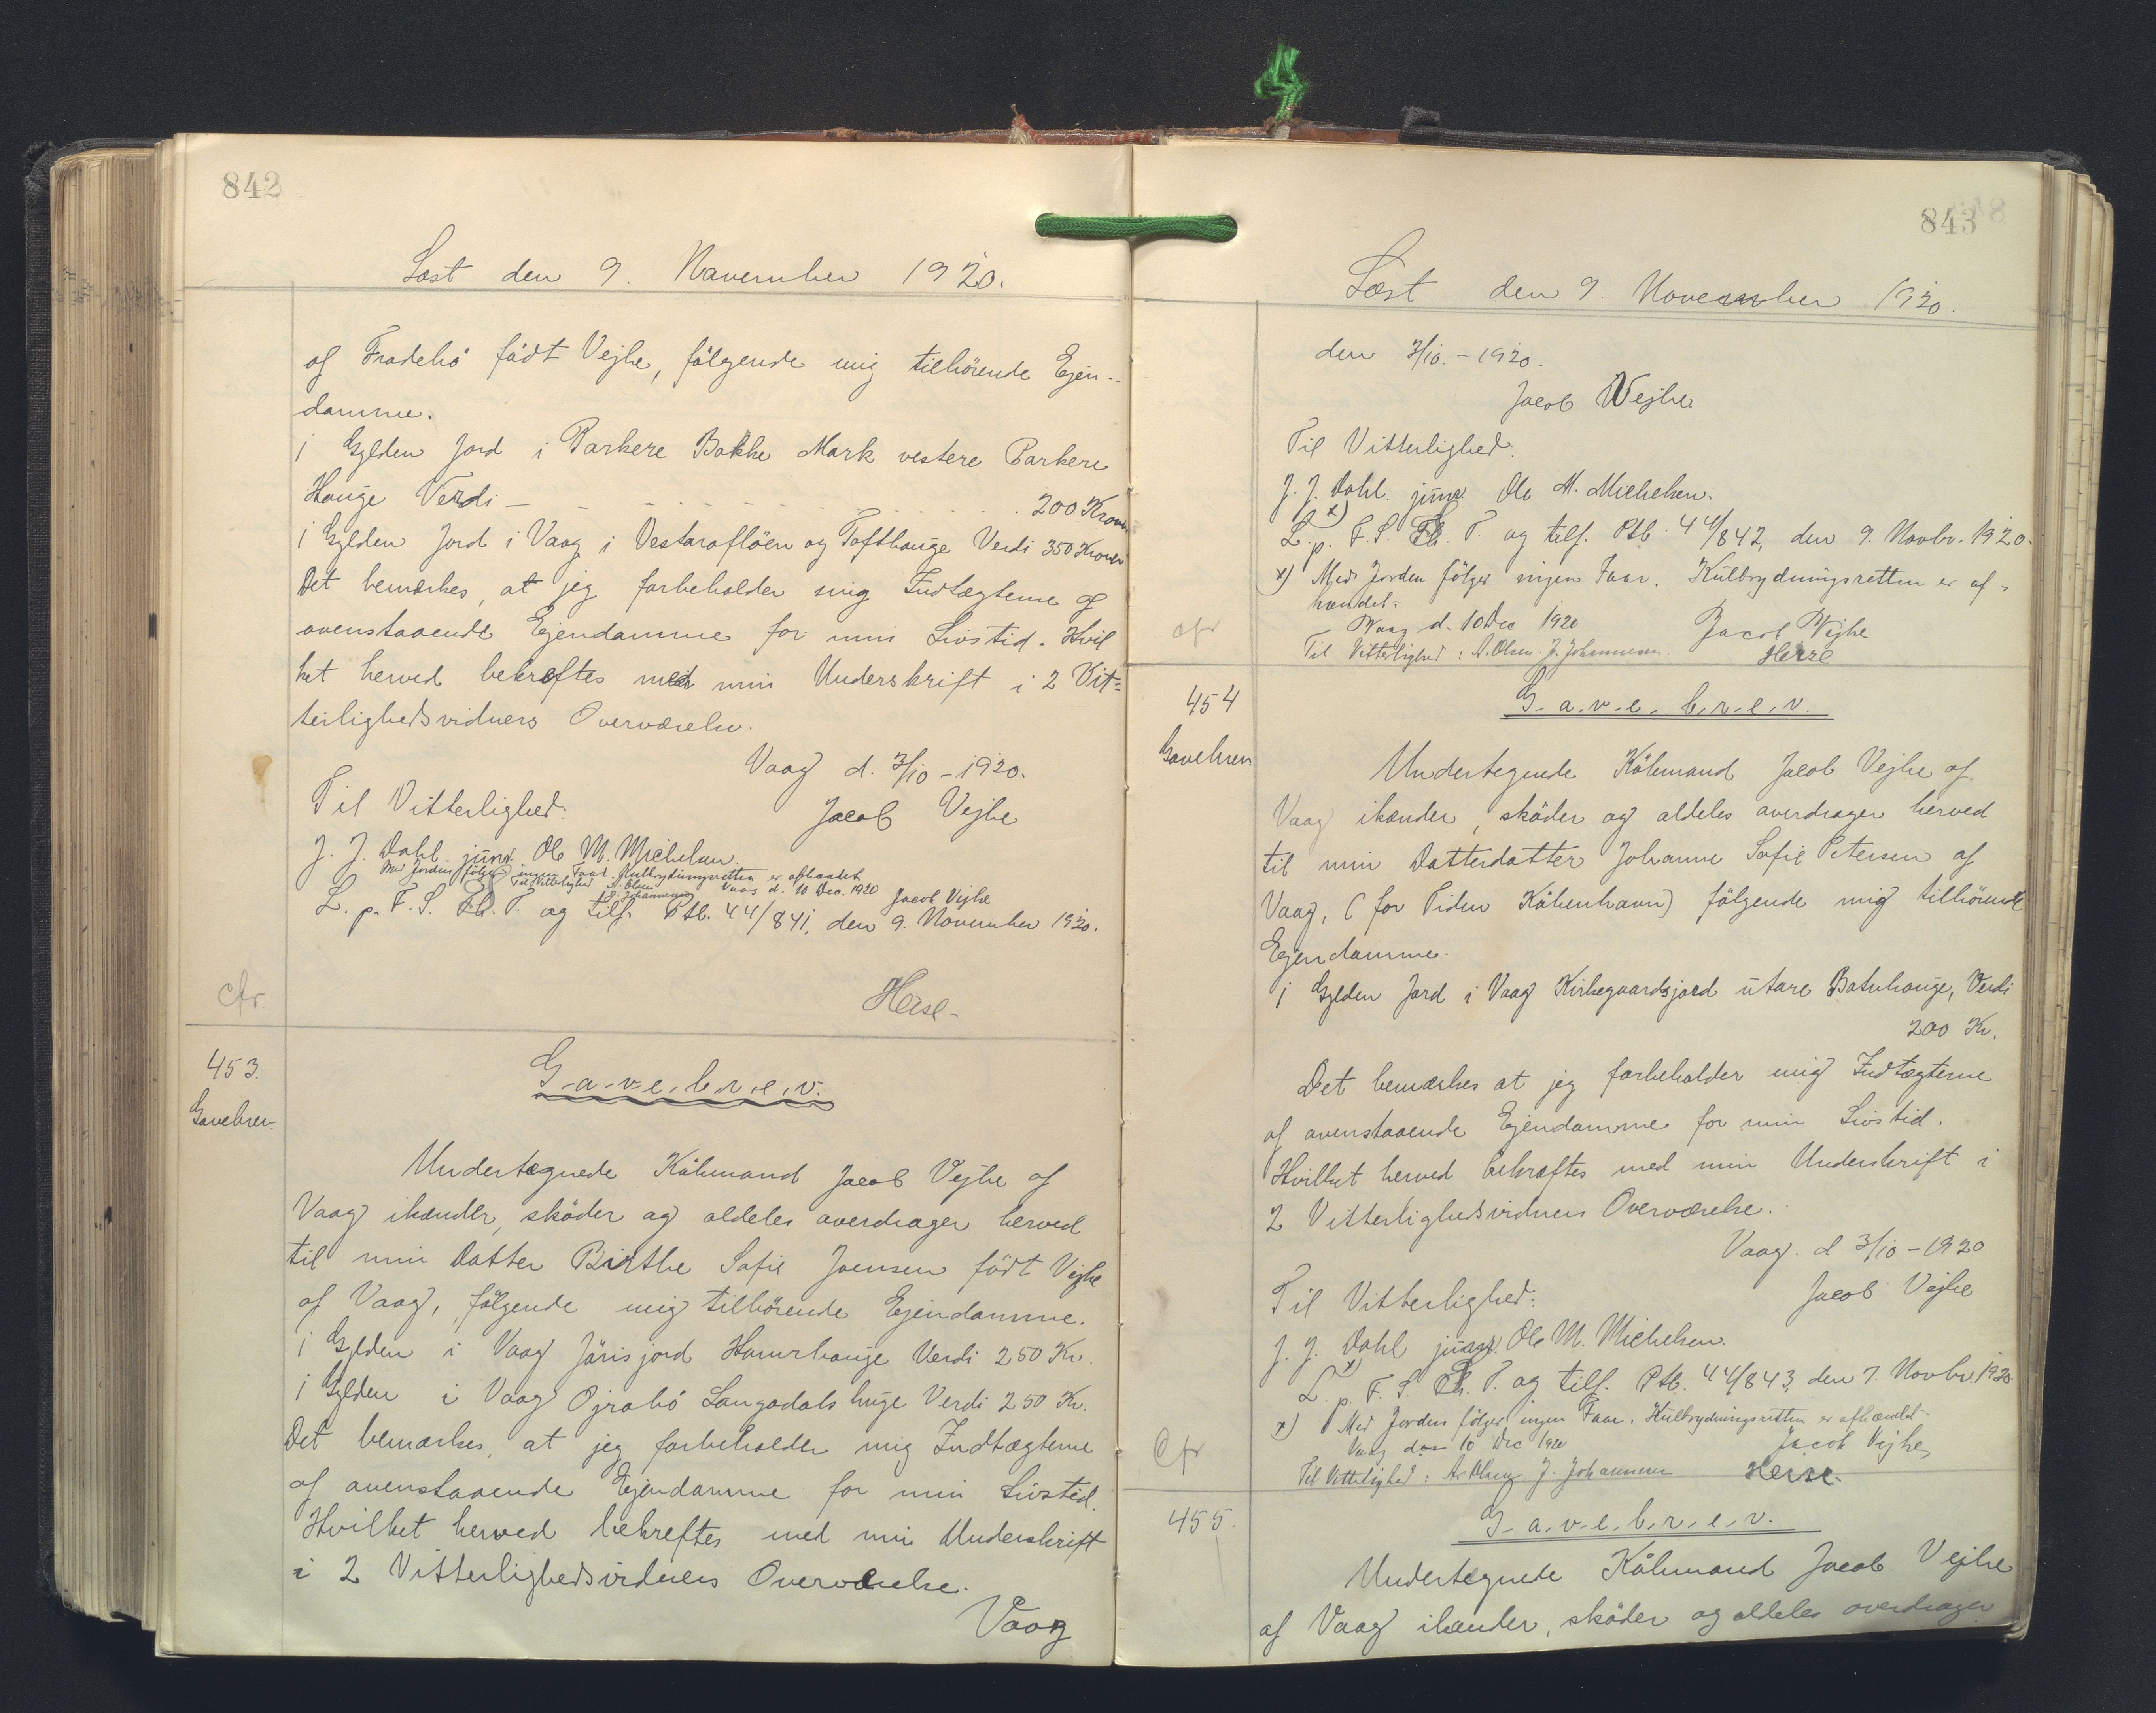 842
Læst den 9. November 1920.
af Fradebö födt Vejhe, fölgende mig tilhörende Ejen-
damme.
1 Gylden Jord i Parkere Bakke Mark vestere Parkere
Hauge Verdi - 200 Kroner
1 Gylden Jord i Vaag i Vestaraflöen og Tofthauge Verdi 350 Kroner
Det bemærkes, at jeg forbeholder mig Indtægterne af
ovenstaaende Ejendamme for min Livstid. Hvil
ket herved bekræftes med min Underskrift i 2 Vit=
terlighedsvidners Overværelse.
Vaag d. 3/10 - 1920.
Til Vitterlighed: Jacob Vejhe
J. J. Dahl junr. Ole M. Michelsen.
Med Jorden fölger ingen Faar. Kulbrydningsretten er afhændet
Til Vitterlighed A. Olsen Vaag d. 10 Dec. 1920 Jacob Vejhe
J. Johannesen
L. p. F. S. Th. P. og tilf. Ptb. 44/841, den 9. November 1920.
Heise-
cfr
453.
Gavebrev.
G-a-v-e-b-r-e-v.
Undertegnede Köbmand Jacob Vejhe af
Vaag ihænder, sköder og aldeles overdrager herved
til min Datter Birthe Sofie Joensen födt Vejhe
af Vaag, fölgende mig tilhörende Ejendamme.
1 Gylden i Vaag Jörisjord Hamrhauge Verdi 250 Kr.
1 Gylden i Vaag Ojrabö Langadals huge Verdi 250 Kr.
Det bemærkes, at jeg forbeholder mig Indtægterne
af ovenstaaende Ejendamme for min Livstid.
Hvilket herved bekreftes med min Underskrift
i 2 Vitterlighedsvidners Overværelse.
Vaag
843
Læst den 9. November 1920.
den 3/10. - 1920.
Jacob Vejhe
Til Vitterlighed.
J. J. Dahl. junr. Ole M. Michelsen.
x)
L. p. F. S. Th. P. og tilf. Ptb. 44/842, den 9. Novbr. 1920.
x) Med Jorden fölger ingen Faar. Kulbrydningsretten er af-
hændet.
cfr
Vaag d. 10 Dec 1920 Jacob Vejhe
Til Vitterlighed: A. Olsen. J. Johannesen. Heise
454
Gavebrev
G-a-v-e-b-r-e-v.
Undertegnede Köbmand Jacob Vejhe af
Vaag ihænder, sköder og aldeles overdrager herved
til min Datterdatter Johanne Sofie Petersen af
Vaag, (for Tiden Köbenhavn) fölgende mig tilhörende
Ejendamme.
1 Gylden Jord i Vaag Kirkegaardsjord utare Batnhauge, Verdi
200 Kr.
Det bemærkes at jeg forbeholder mig Indtægterne
af ovenstaaende Ejendamme for min Livstid.
Hvilket herved bekræftes med min Underskrift i
2 Vitterlighedsvidners Overværelse.
Vaag. d 3/10 - 1920
Til Vitterlighed: Jacob Vejhe
J. J. Dahl junr. Ole M. Michelsen.
x)
L. p. F. S. Th. P. og tilf. Ptb. 44/843, den 7. Novbr. 1920.
x) Med Jorden fölger ingen Faar. Kulbrydningsretten er afhændet.
Cfr
Vaag den 10 Dec 1920 Jacob Vejhe
Til Vitterlighed: A. Olsen J. Johannesen Heise.
455.
G-a-v-e-b-r-e-v.
Undertegnede Köbmand Jacob Vejhe
af Vaag ihænder, sköder og aldeles overdrager